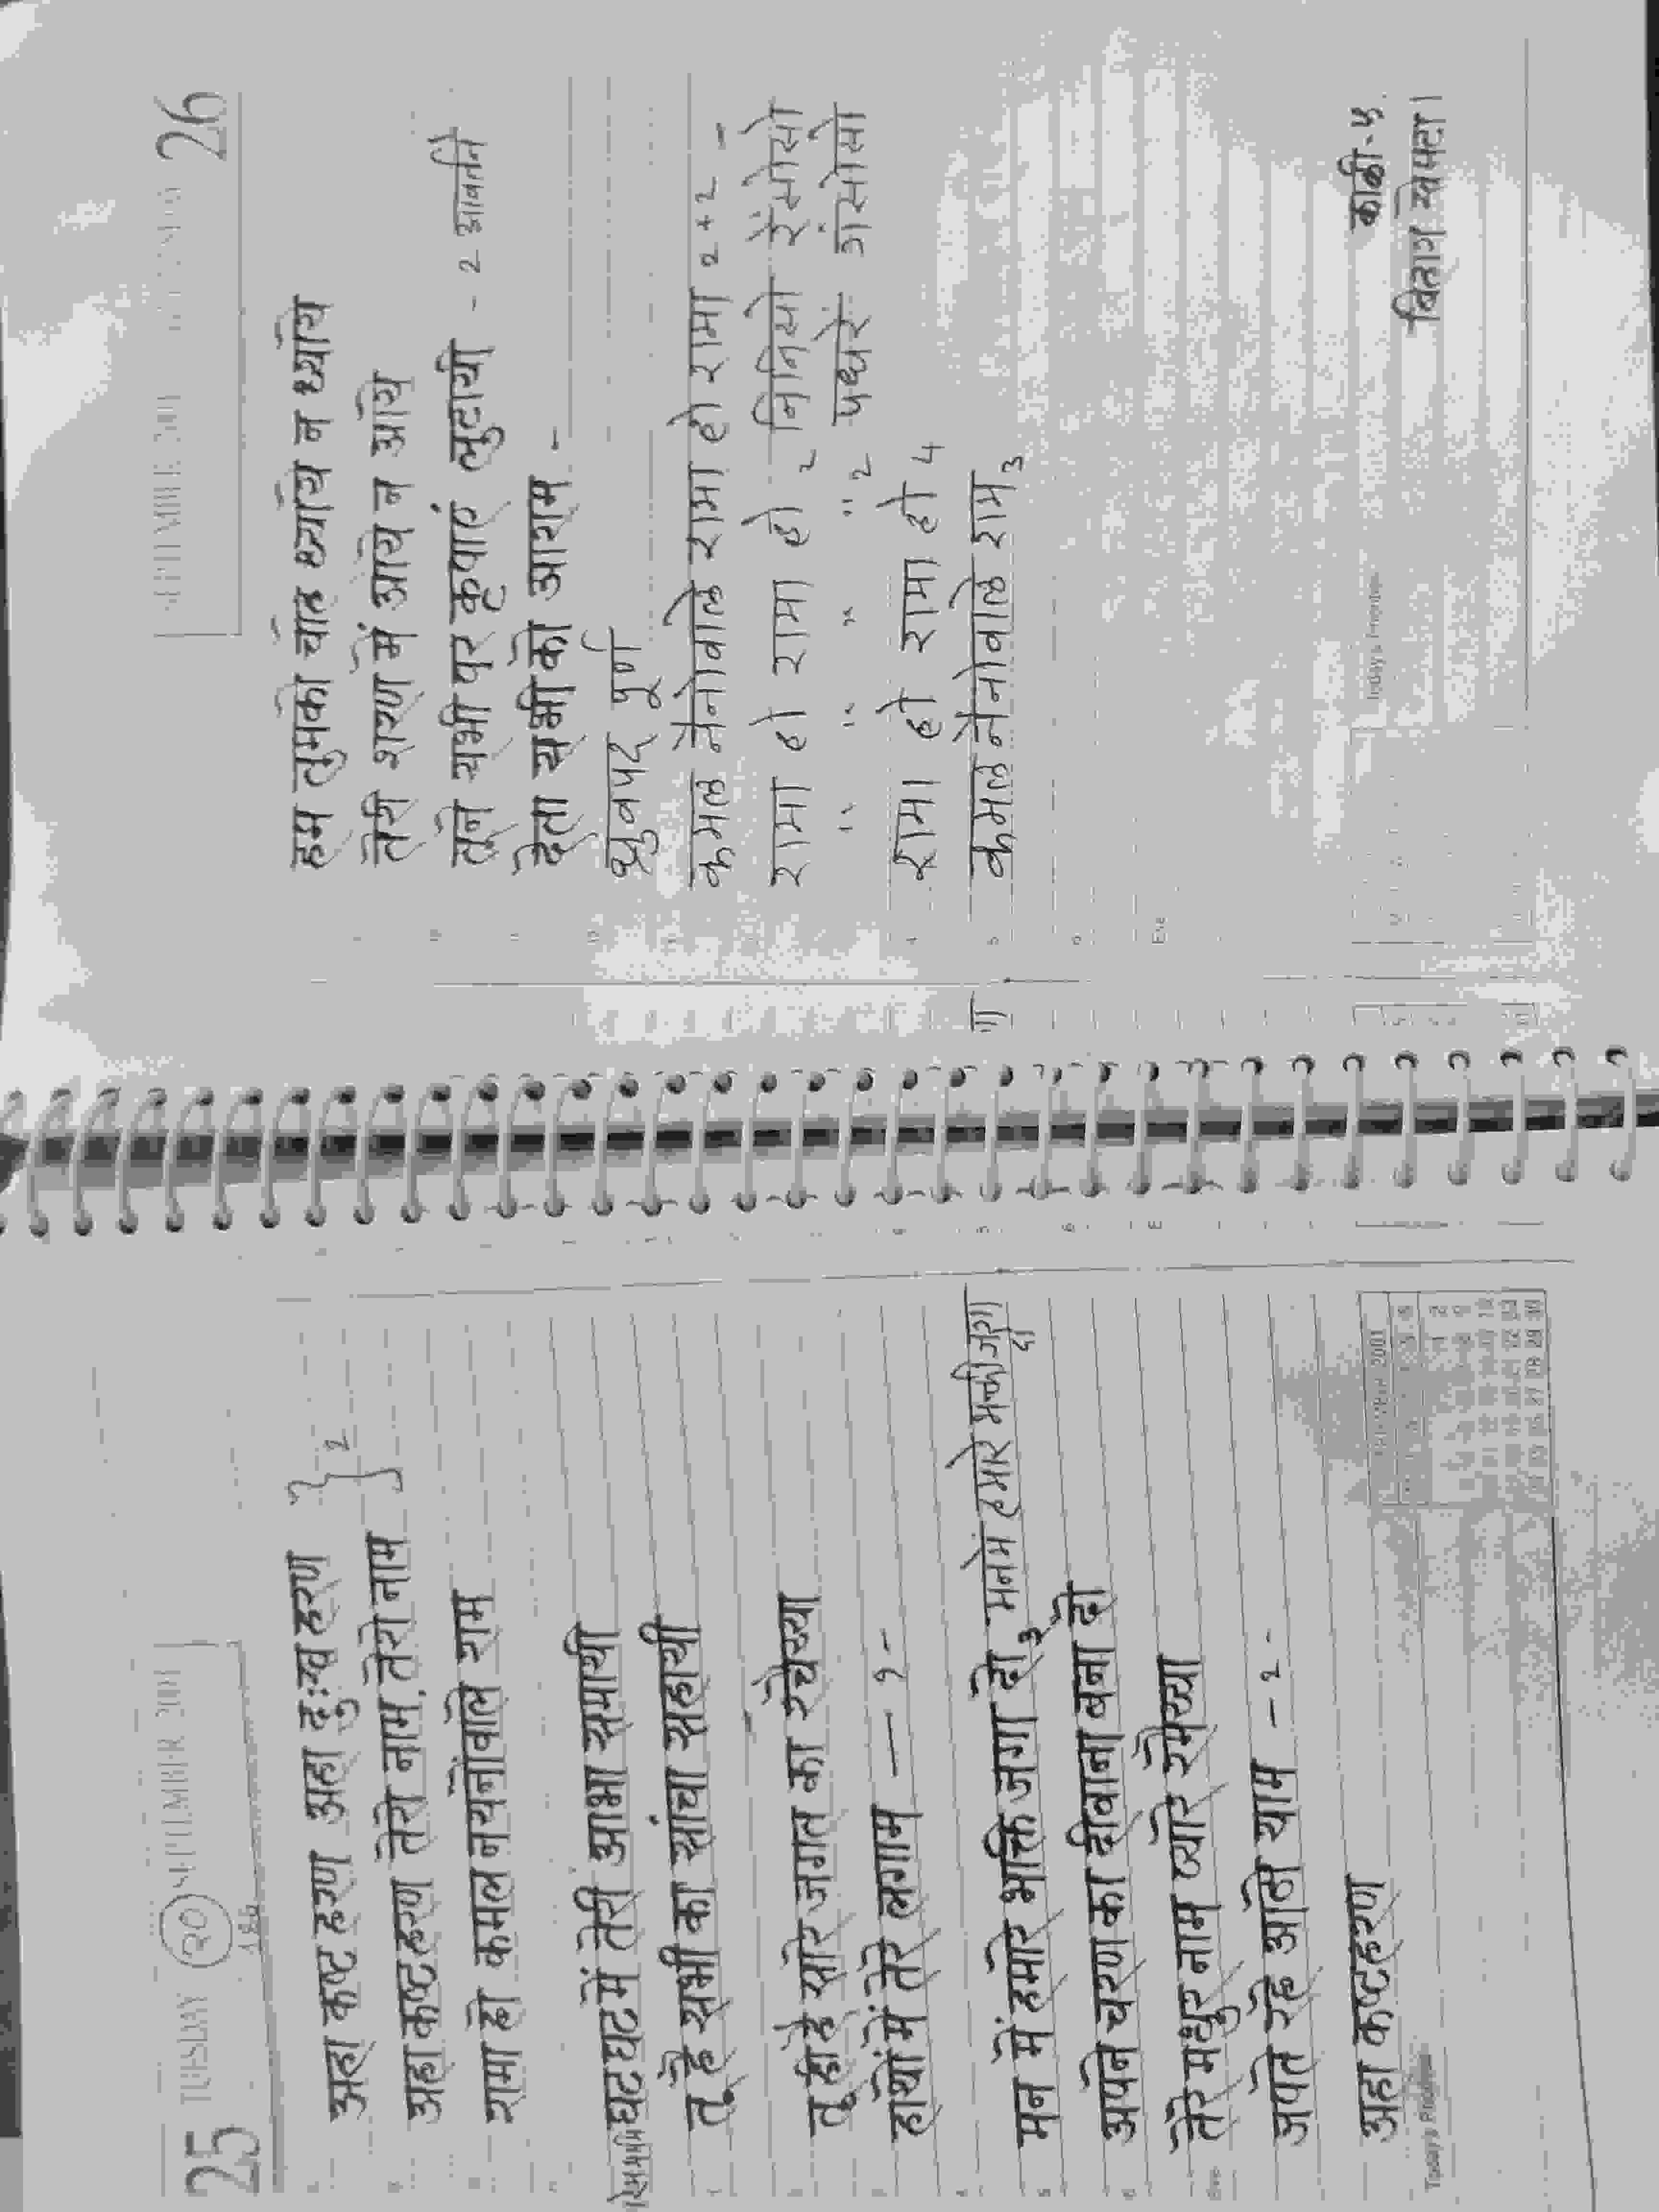 25 TUESDAY २० SEPTEMBER 2001
186
अहा कष्ट हरण अहा दुःख हरण } 2
अहा कष्ट हरण तेरो नाम, तेरो नाम
रामा हो कमल नयनोंवाले राम
घट घट में तेरी आभा समायी
तू है सभी का सांचा सहायी
तू ही है सारे जगत का रचैय्या
हाथों में तेरे लगाम — १ -
मन में हमारे भक्ति जगा दो ३ मनमें हमारे भक्ती जगा
दो
अपने चरण का दीवाना बना दो
तेरे मधुर नाम प्यारे रमैय्या
जपते रहे आठो याम - २ -
अहा कष्टहरण
Today's Priorities
SEPTEMBER 2001
SEPTEMBER 2001 26
हम तुमको चाहे ध्याये न ध्याये
तेरी शरण में आये न आये
तूने सभी पर कृपाएं लुटायी - 2 आवर्तने
देता सभी को आराम -
ध्रुवपद पूर्ण
कमल नैनोवाले रामा हो रामा 2 + 2 -
रामा हो रामा हो 2 निनिसो रेंसोसो
" " " " 2 पधरें गंसोसो
रामा हो रामा हो 4
कमल नैनोवाले राम 3
Eve
Today's Priorities
काळी-५
बिहाग खेमटा।